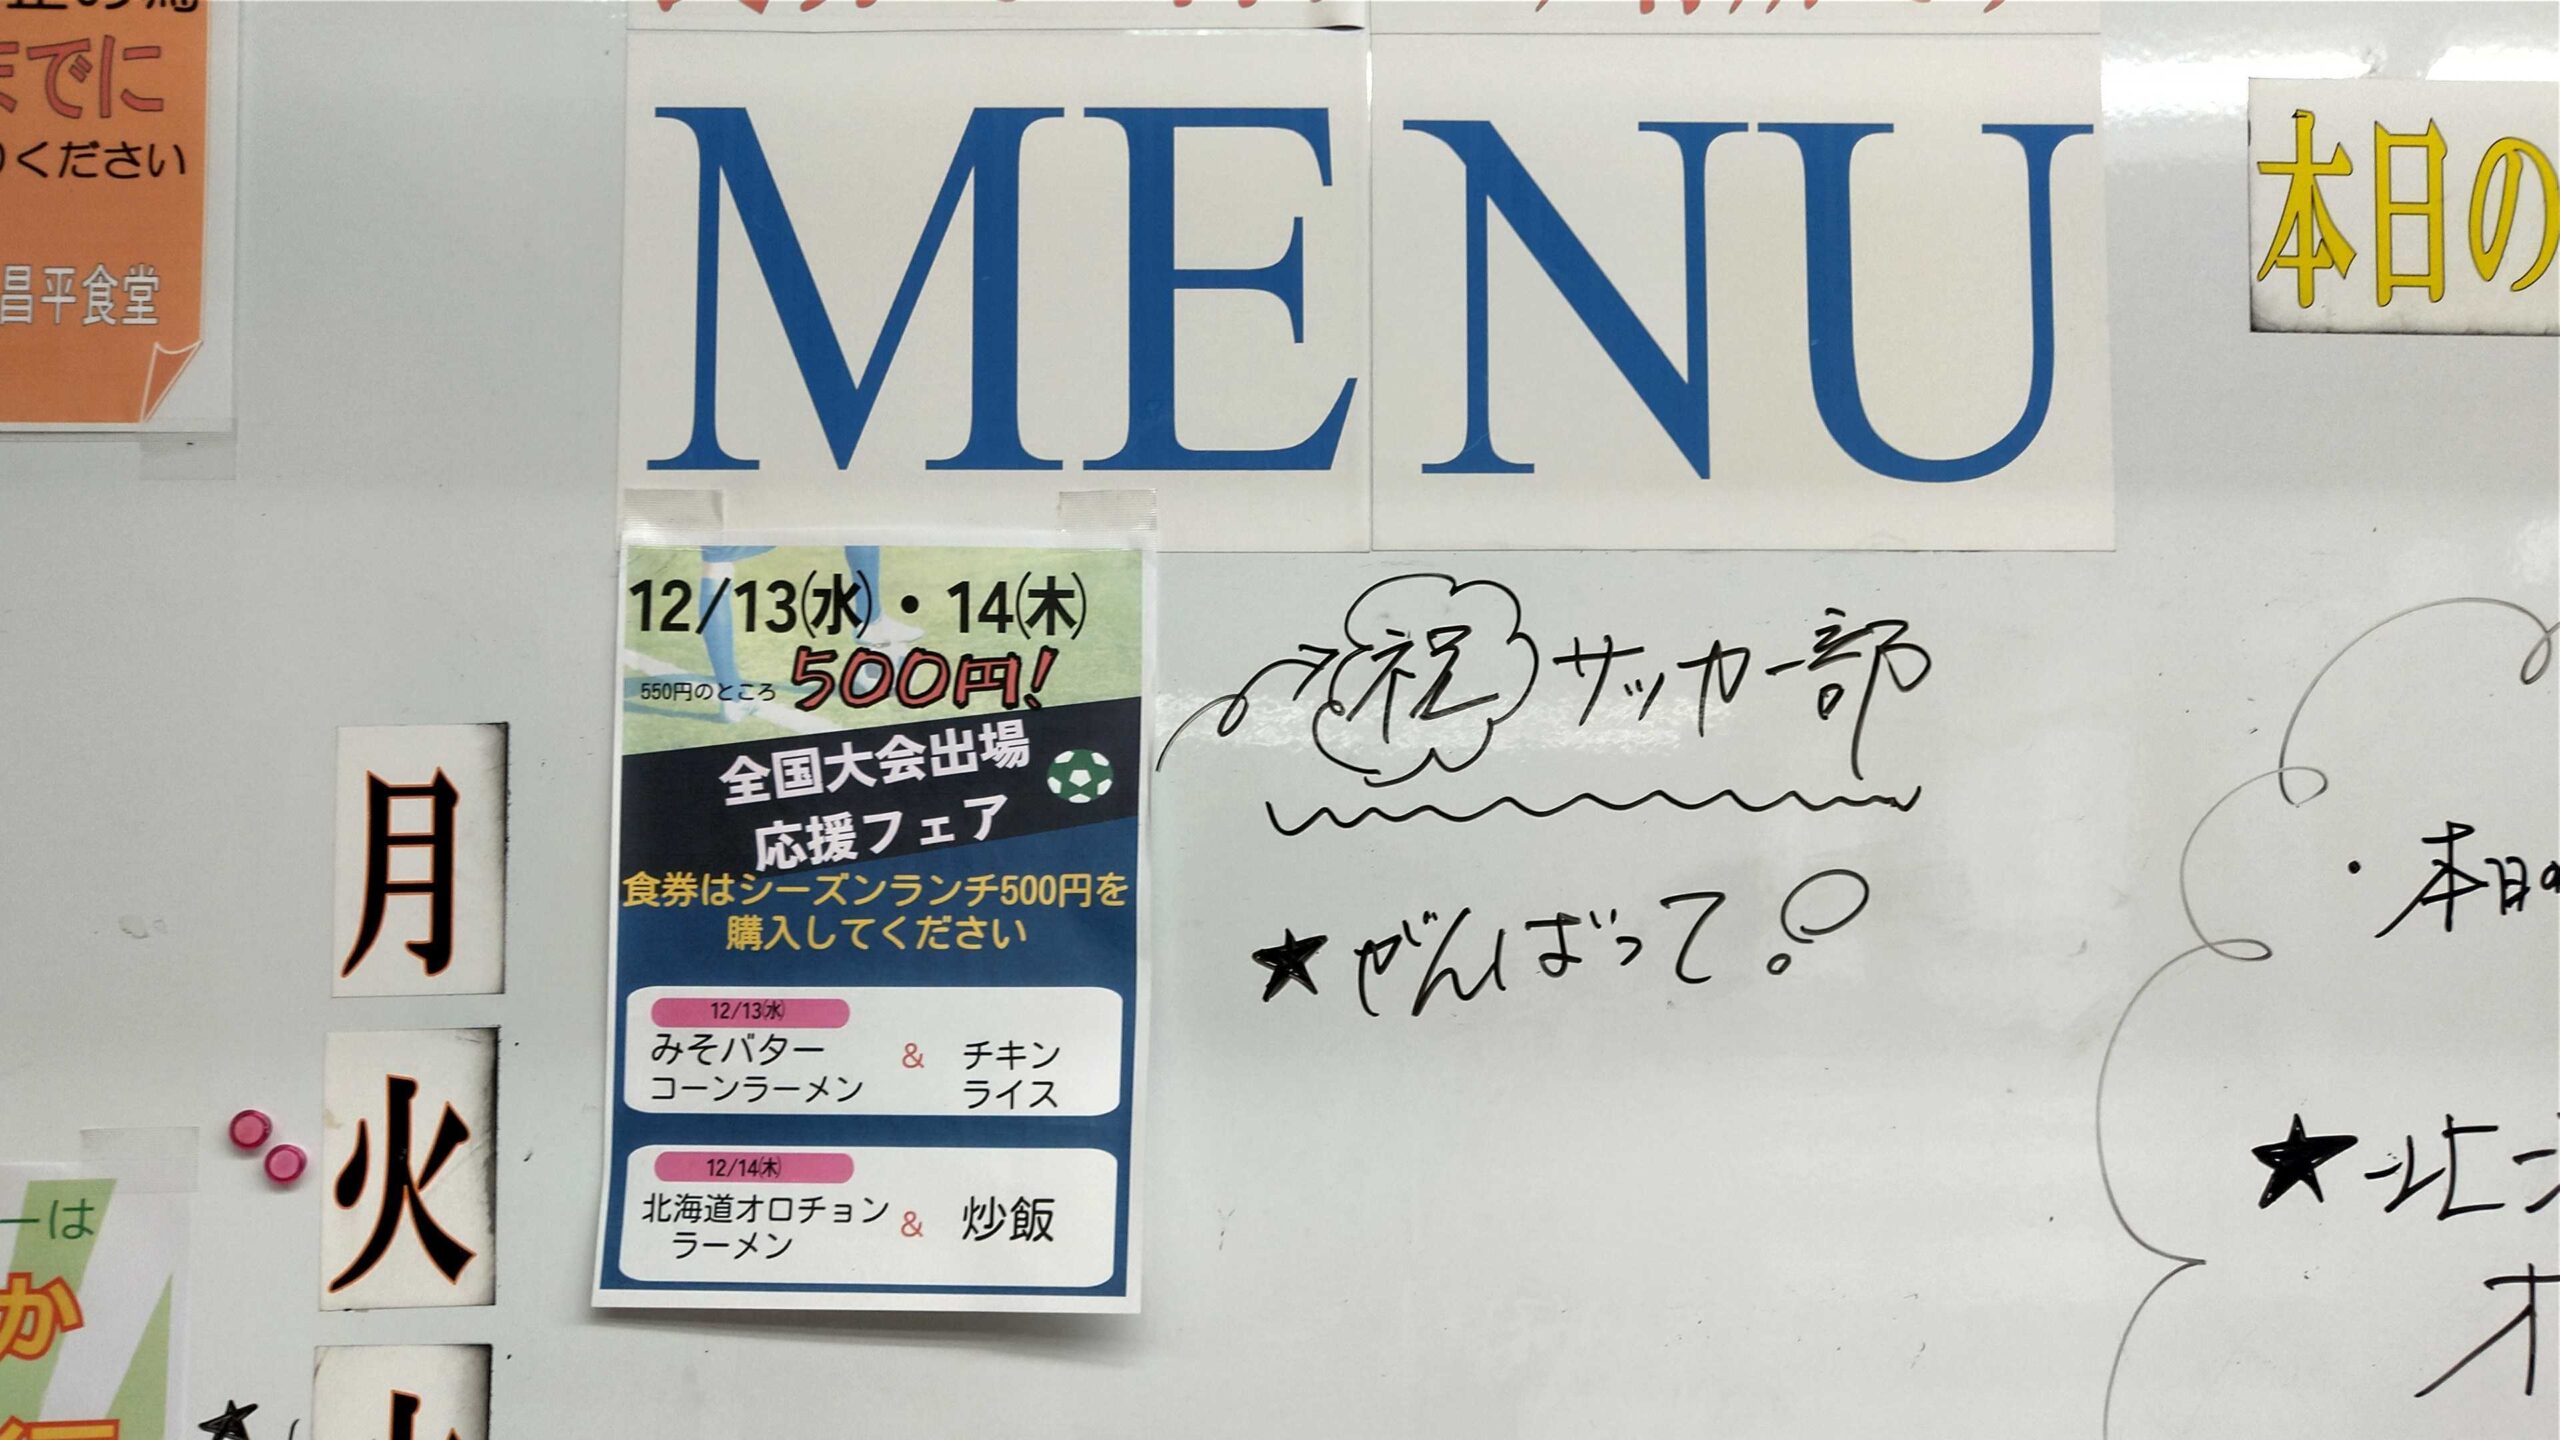 までに
ください
昌平食堂
MENU
本日の
12/13㈬・14㈭
550円のところ 500円!
全国大会出場
応援フェア
食券はシーズンランチ500円を
購入してください
12/13㈬
みそバター
コーンラーメン
&
チキン
ライス
12/14㈭
北海道オロチョン
ラーメン
&
炒飯
祝 サッカー部
★がんばって!
月
火
ーは
か
・本日の